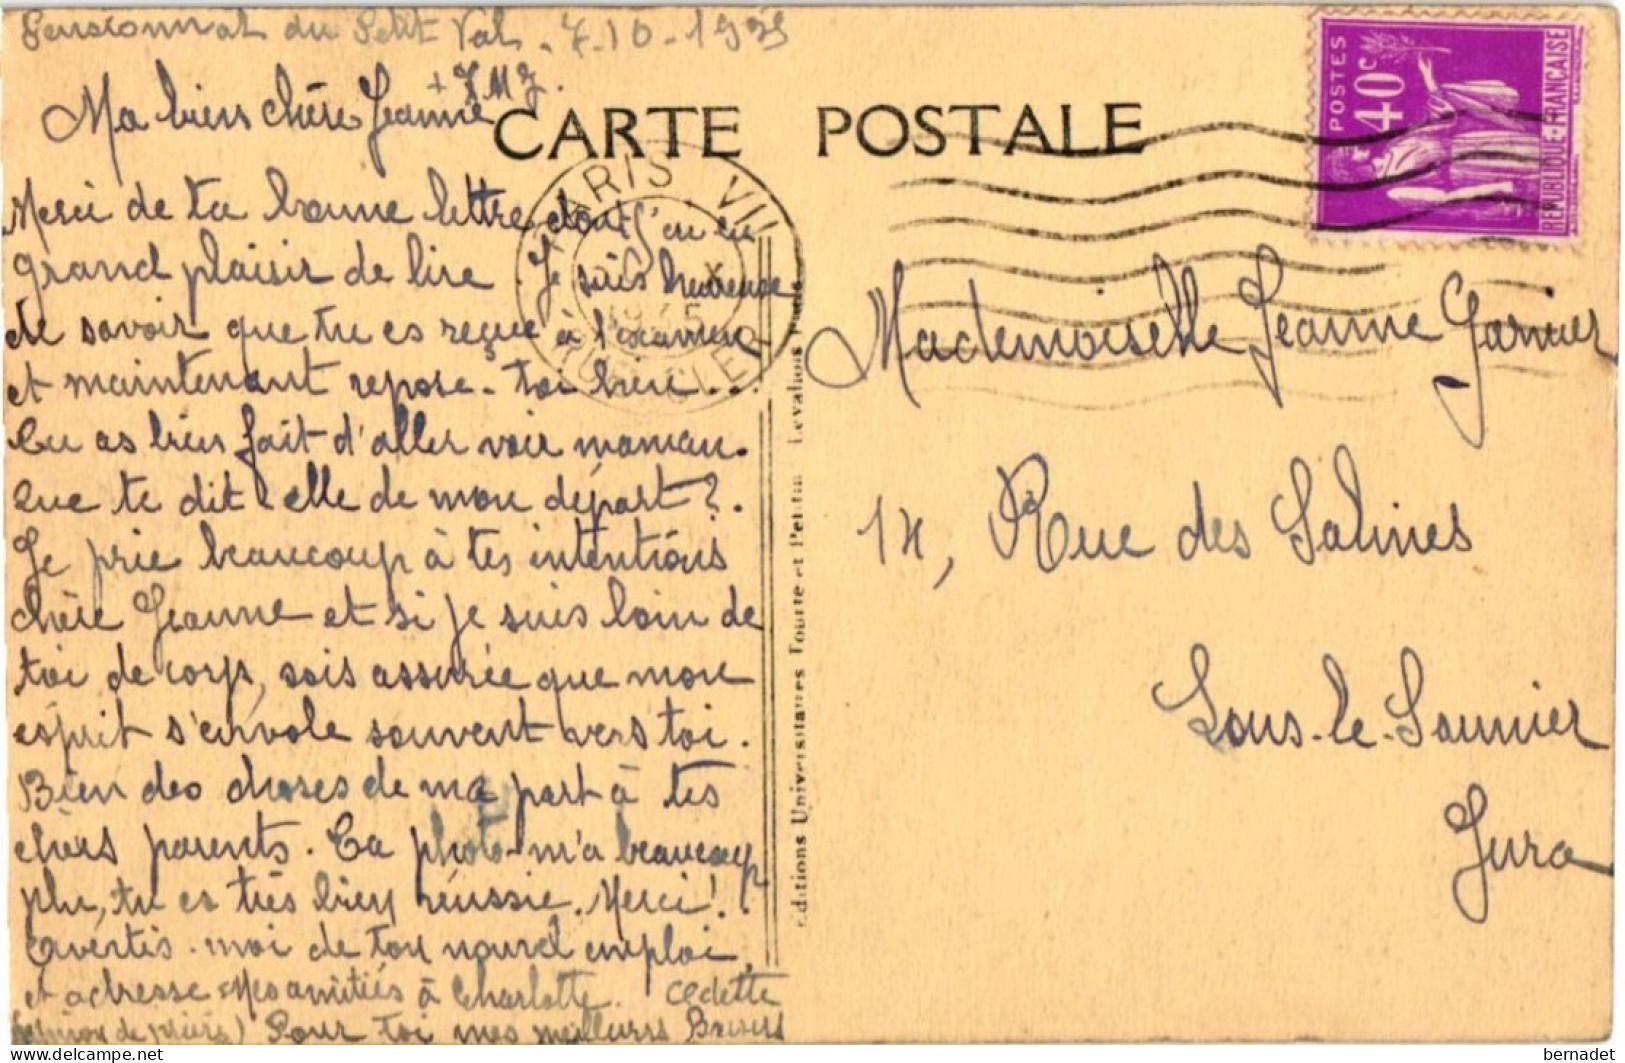 Pensionnat du Petit Val. 7-10-1935
+ J M J.
Ma bien chère Jeanne
CARTE POSTALE
POSTES
40c
REPUBLIQUE-FRANÇAISE
PARIS VII
Merci de ta bonne lettre dont j'ai eu
grand plaisir de lire. Je suis heureuse
de savoir que tu es reçue à l'examen
et maintenant repose-toi bien...
Tu as bien fait d'aller voir maman.
Que te dit-elle de mon départ?.
Je prie beaucoup à tes intentions
chère Jeanne et si je suis loin de
toi de corps, sois assurée que mon
esprit s'envole souvent vers toi.
Bien des choses de ma part à tes
chers parents. Ta photo m'a beaucoup
plu, tu es très bien réussie. Merci!
Avertis-moi de ton nouvel emploi
et adresse. Mes amitiés à Charlotte. Odette
(union de prières) Pour toi mes meilleurs Baisers
Editions Universitaires Tourte et Petitin Levallois Paris
Mademoiselle Jeanne Garnier
14, Rue des Salines
Lons-le-Saunier
Jura
bernadet